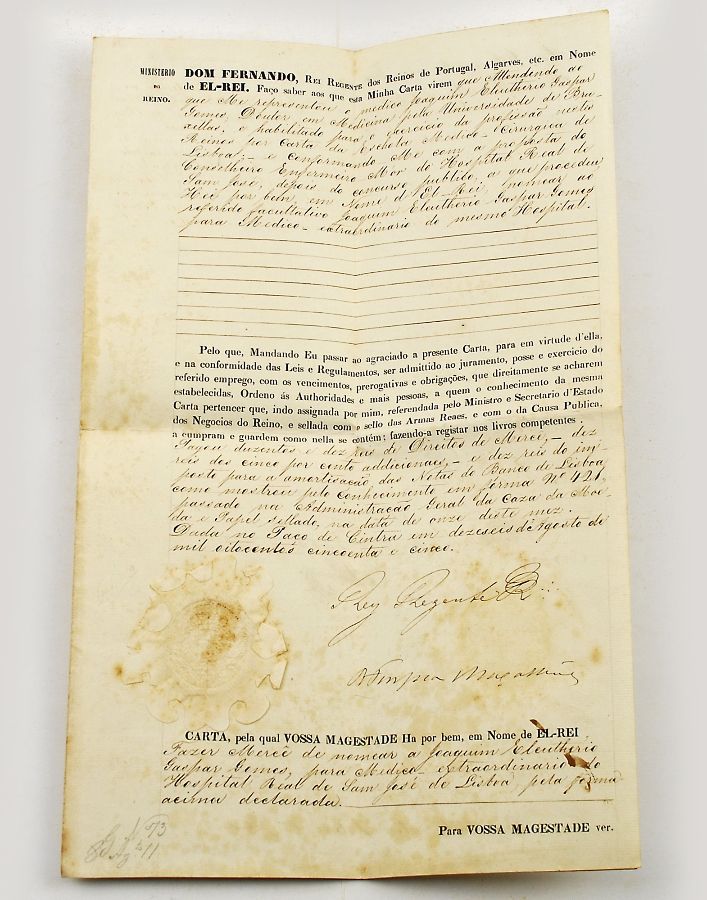 MINISTERIO
DO
REINO.
DOM FERNANDO, REI REGENTE dos Reinos de Portugal, Algarves, etc. em Nome
de EL-REI. Faço saber aos que esta Minha Carta virem que Attendendo ao
que Me representou o medico Joaquim Eleutherio Gaspar
Gomes, Doutor em Medicina pela Universidade de Bru-
xellas, e habilitado para o exercicio da profissão nestes
Reinos por Carta da Eschola Medico-Cirurgica de
Lisboa; e Conformando-Me com a proposta do
Conselheiro Enfermeiro Mór do Hospital Real de
Sam José, depois do concurso publico, a que procedeu
Hei por bem, em Nome d'El-Rei, nomear ao
referido facultativo Joaquim Eleutherio Gaspar Gomes
para Medico extraordinario do mesmo Hospital.
Pelo que, Mandando Eu passar ao agraciado a presente Carta, para em virtude d'ella,
e na conformidade das Leis e Regulamentos, ser admittido ao juramento, posse e exercicio do
referido emprego, com os vencimentos, prerogativas e obrigações, que direitamente se acharem
estabelecidas, Ordeno ás Authoridades e mais pessoas, a quem o conhecimento da mesma
Carta pertencer que, indo assignada por mim, referendada pelo Ministro e Secretario d'Estado
dos Negocios do Reino, e sellada com o sello das Armas Reaes, e com o da Causa Publica,
a cumpram e guardem como nella se contém; fazendo-a registar nos livros competentes.
Pagou duzentos e dez reis de Direitos de Mercê, dez
reis dos cinco por cento addicionaes, e dez reis do im-
posto para a amortisação das Notas do Banco de Lisboa,
como mostrou pelo conhecimento em forma Nº 421,
passado na Administração Geral da Caza da Moe-
da e Papel sellado, na data de onze deste mez.
Dada no Paço de Cintra em dezeseis de Agosto de
mil oitocentos cincoenta e cinco.
Rey Regente
CARTA, pela qual VOSSA MAGESTADE Ha por bem, em Nome de EL-REI
Fazer Mercê de nomear a Joaquim Eleutherio
Gaspar Gomes, para Medico extraordinario do
Hospital Real de Sam José de Lisboa pela forma
acima declarada.
Para VOSSA MAGESTADE ver.